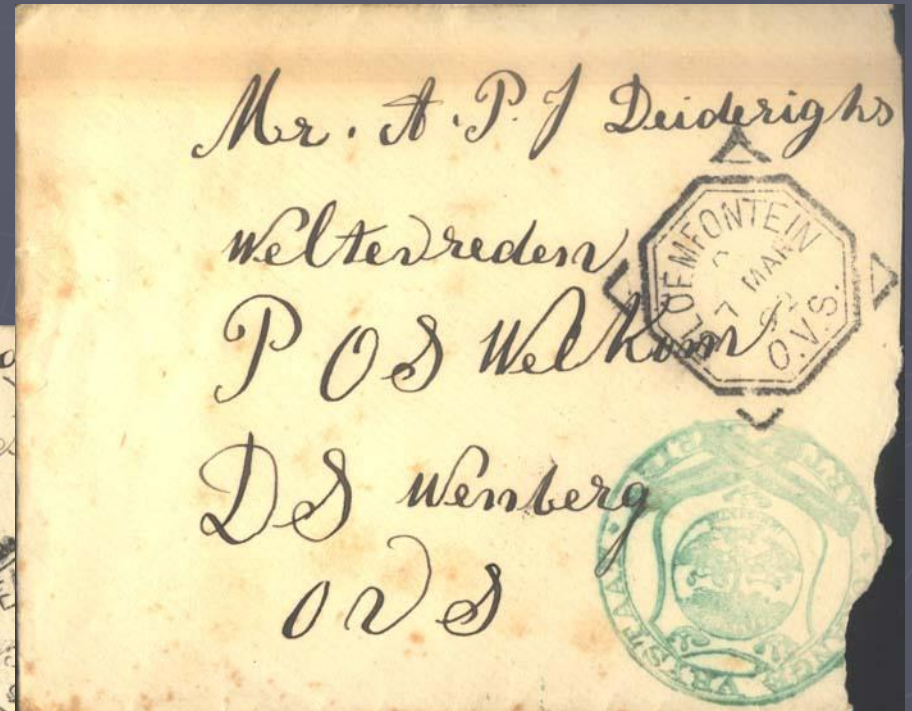 Mr. A. P. J Deiderighs
Weltevreden
P O S Welkom
D S Wenberg
O V S
BLOEMFONTEIN
7 MAR
92
O.V.S.
VRYSTAAT